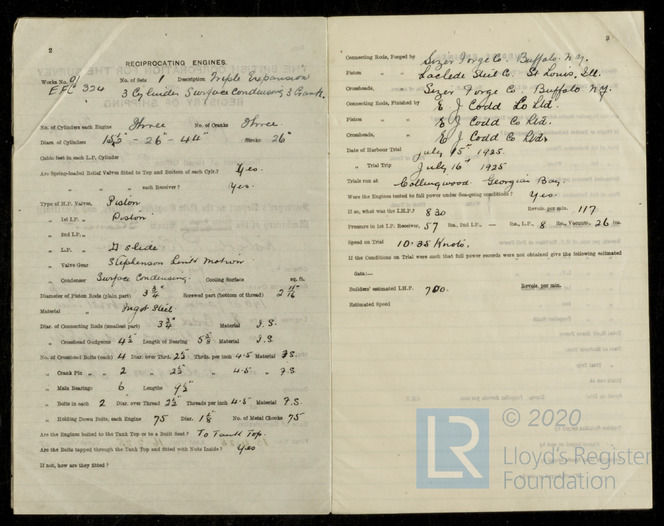 2
RECIPROCATING ENGINES.
Works No. 91 No. of Sets 1 Description Triple Expansion
EFC 324 3 Cylinder Surface Condensing 3 Crank.
No. of Cylinders each Engine Three No. of Cranks Three
Diars. of Cylinders 15½" - 26" - 44" Stroke 26"
Cubic feet in each L.P. Cylinder
Are Spring-loaded Relief Valves fitted to Top and Bottom of each Cylr.? Yes.
" " each Receiver? Yes.
Type of H.P. Valves, Piston
" 1st I.P. " Piston
" 2nd I.P. "
" L.P. " D slide
" Valve Gear Stephenson Link Motion
" Condenser Surface Condensing. Cooling Surface sq. ft.
Diameter of Piston Rods (plain part) 3¾" Screwed part (bottom of thread) 2 11/16"
Material " Ingot Steel
Diar. of Connecting Rods (smallest part) 3¾" Material I.S.
" Crosshead Gudgeons 4½" Length of Bearing 5⅝" Material I.S.
No. of Crosshead Bolts (each) 4 Diar. over Thrd. 2½" Thrds. per inch 4.5 Material F.S.
" Crank Pin " " 2 " 2½" " 4.5 " F.S.
" Main Bearings 6 Lengths 9½"
" Bolts in each 2 Diar. over Thread 2½" Threads per inch 4.5 Material F.S.
" Holding Down Bolts, each Engine 75 Diar. 1⅛ No. of Metal Chocks 75
Are the Engines bolted to the Tank Top or to a Built Seat? To Tank Top.
Are the Bolts tapped through the Tank Top and fitted with Nuts Inside? Yes
If not, how are they fitted?
3
Connecting Rods, Forged by Sizer Forge Co. Buffalo N.Y.
Piston " " Laclede Steel Co. St Louis, Ill.
Crossheads, " Sizer Forge Co. Buffalo N.Y.
Connecting Rods, Finished by E J Codd Co Ltd.
Piston " " E J Codd Co Ltd.
Crossheads, " E J Codd Co Ltd.
Date of Harbour Trial July 15th 1925.
" Trial Trip July 16th 1925
Trials run at Collingwood Georgian Bay.
Were the Engines tested to full power under Sea-going conditions? Yes.
If so, what was the I.H.P.? 830 Revols. per min. 117
Pressure in 1st I.P. Receiver, 57 lbs., 2nd I.P., — lbs., L.P., 8 lbs., Vacuum, 26 ins.
Speed on Trial 10.35 Knots.
If the Conditions on Trial were such that full power records were not obtained give the following estimated
data:—
Builders' estimated I.H.P. 700. Revols. per min.
Estimated Speed
© 2020
LR
Lloyd's Register
Foundation